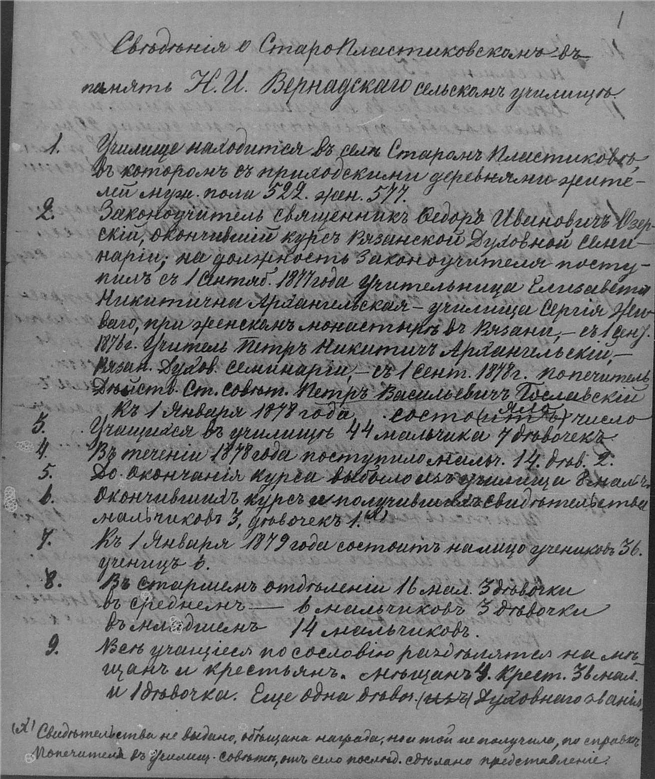 1
Свѣдѣнія о СтароПластиковскомъ въ
память Н.И. Вернадскаго сельскомъ училищѣ
1. Училище находится въ селѣ Старомъ Пластиковѣ,
въ которомъ съ приходскими деревнями жите-
лей муж. пола 522. жен. 577.
2. Законоучитель священникъ Ѳедоръ Ивановичъ Озер-
скій, окончившій курсъ Рязанской Духовной семи-
наріи; на должность законоучителя посту-
пилъ съ 1 Сентяб. 1877 года учительница Елизавета
Никитична Архангельская – училища Сергія Жи-
ваго, при женскомъ монастырѣ въ Рязани, – съ 1 сен.
1876г. Учитель Петръ Никитичъ Архангельскій, –
Рязан. Духов. семинаріи, – съ 1 сент. 1878г. попечитель
Дѣйств. Ст. совѣт. Петръ Васильевичъ Пославскій
Къ 1 Января 1878 года состо число
3. Учащихся въ училищѣ 44 мальчика 7 дѣвочекъ
4. Въ теченіи 1878 года поступило мальч. 14. дѣв. 2.
5. До окончанія курса выбыло изъ училища 8 мальч.
6. Окончившихъ курсъ и получившихъ свидѣтельства
мальчиковъ 3, дѣвочекъ 1.
7. Къ 1 Января 1879 года состоитъ на лицо учениковъ 36.
ученицъ 6.
8. Въ старшемъ отдѣленіи 16 мал. 3 дѣвочки
въ среднемъ — 6 мальчиковъ 3 дѣвочки
въ младшемъ 14 мальчиковъ.
9. Всѣ учащіеся по сословію раздѣляются на мѣ-
щанъ и крестьянъ. Мѣщанъ 4. Крест. 36 мал.
и 1 дѣвочка. Еще одна дѣвоч. (изъ) Духовнаго званія
(Х) Свидѣтельства не выдано, обѣщана награда, но и той не получила, по справкѣ
Попечителя въ училищ. совѣтѣ, отъ село послѣд. сдѣлано представленіе.